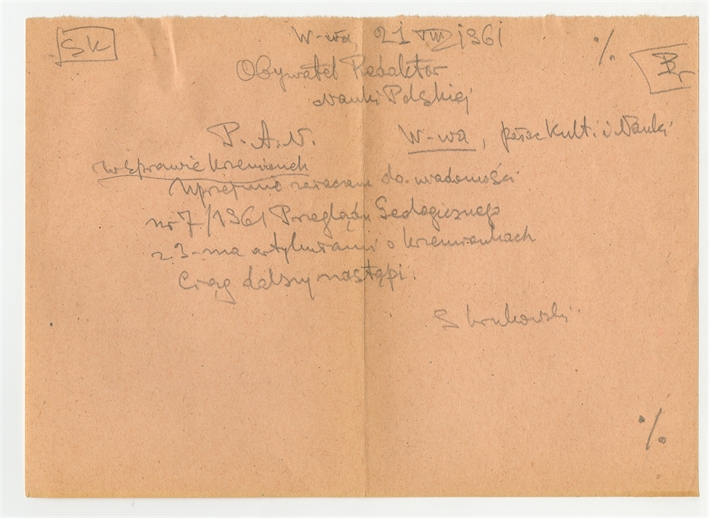 SK
W-wa 21 VIII 1961
%
Br
Obywatel Redaktor
Nauki Polskiej
P.A.N. W-wa, pałac Kult. i Nauki
w sprawie krzemionek
Uprzejmie załączam do wiadomości
nr 7/1961 Przeglądu Geologicznego
z 3-ma artykułami o krzemionkach
Ciąg dalszy nastąpi.
S Krukowski
%